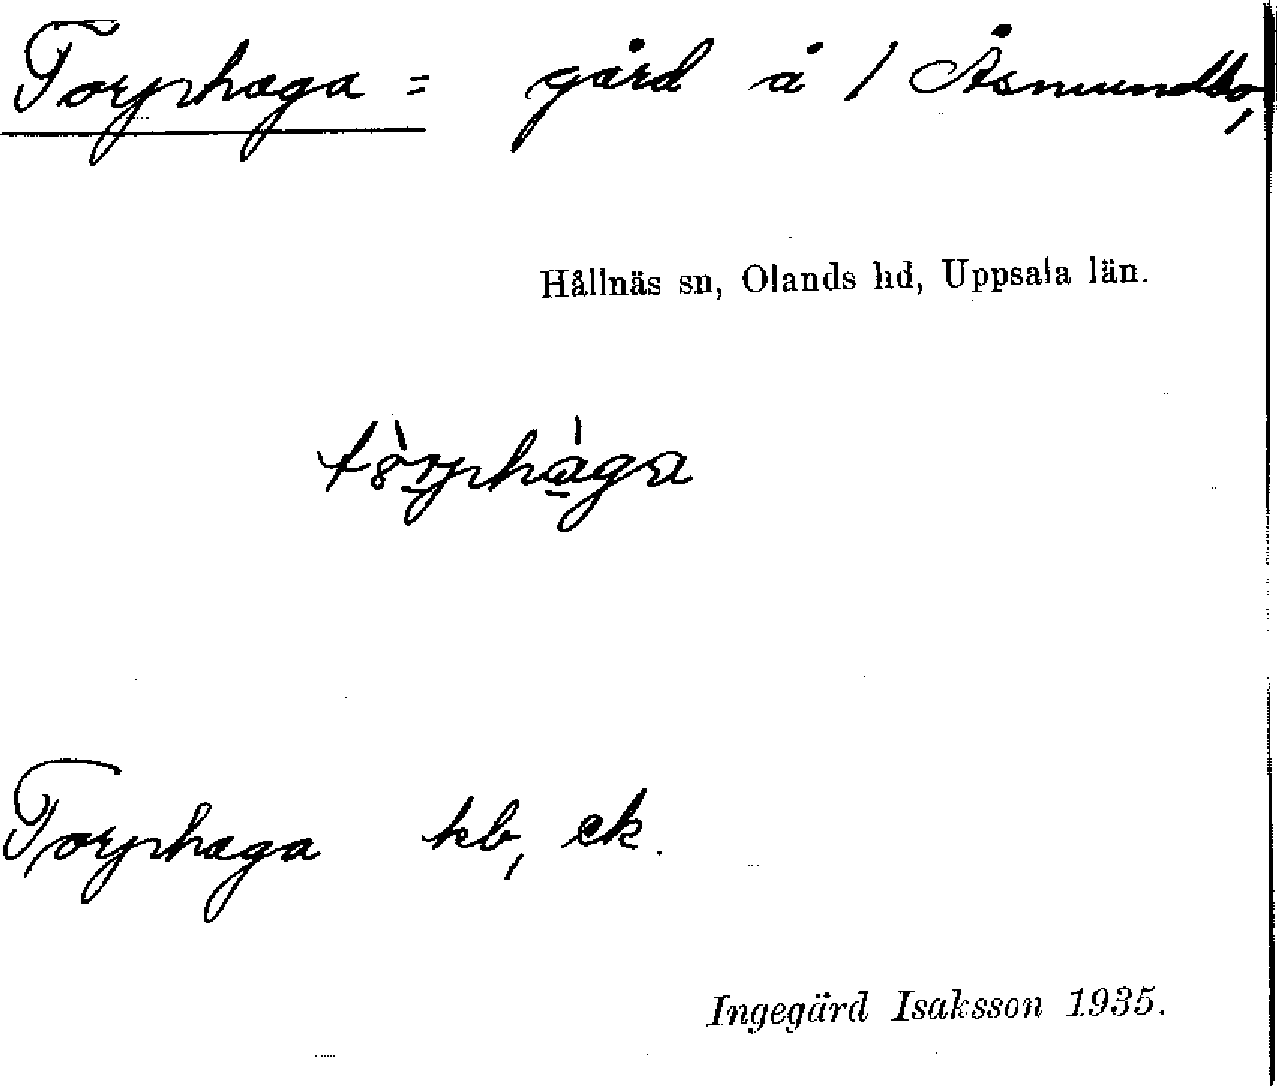 Torphaga = gård å / Åsmundbo,
Hållnäs sn, Olands hd, Uppsala län.
tòrphàga
Torphaga kb, ek.
Ingegärd Isaksson 1935.